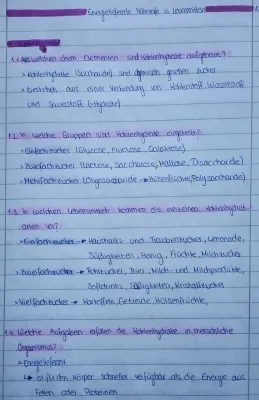 Energieliefernde Nährstoffe in Lebensmitteln
1. Kohlenhydrate
1.1 Aus welchen chem. Elementen sind Kohlenhydrate aufgebaut?
> Kohlenhydrate (Saccharide) sind chemisch gesehen Zucker
> bestehen aus einer Verbindung von Kohlenstoff, Wasserstoff
und Sauerstoff (=Hydrate)
1.2. In welche Gruppen sind Kohlenhydrate eingeteilt?
> Einfachzucker (Glucose, Fructose, Galaktose)
> Zweifachzucker (Lactose, Saccharose, Maltose, Disaccharide)
> Mehrfachzucker (Oligosaccharide → Hülsenfrüchte, Polysaccharide)
1.3. In welchen Lebensmitteln kommen die einzelnen Kohlenhydrat-
arten vor?
> Einfachzucker → Haushalts- und Traubenzucker, Limonade,
Süßigkeiten, Honig, Früchte, Milchzucker
> Zweifachzucker → Rohrzucker, Bier, Milch- und Milchprodukte,
Softdrinks, Süßigkeiten, Kristallzucker
> Vielfachzucker → Kartoffeln, Getreide, Hülsenfrüchte,
1.4. Welche Aufgaben erfüllen die Kohlenhydrate im menschlichen
Organismus?
> Energielieferant
↳ ist für den Körper schneller verfügbar als die Energie aus
Fetten oder Proteinen